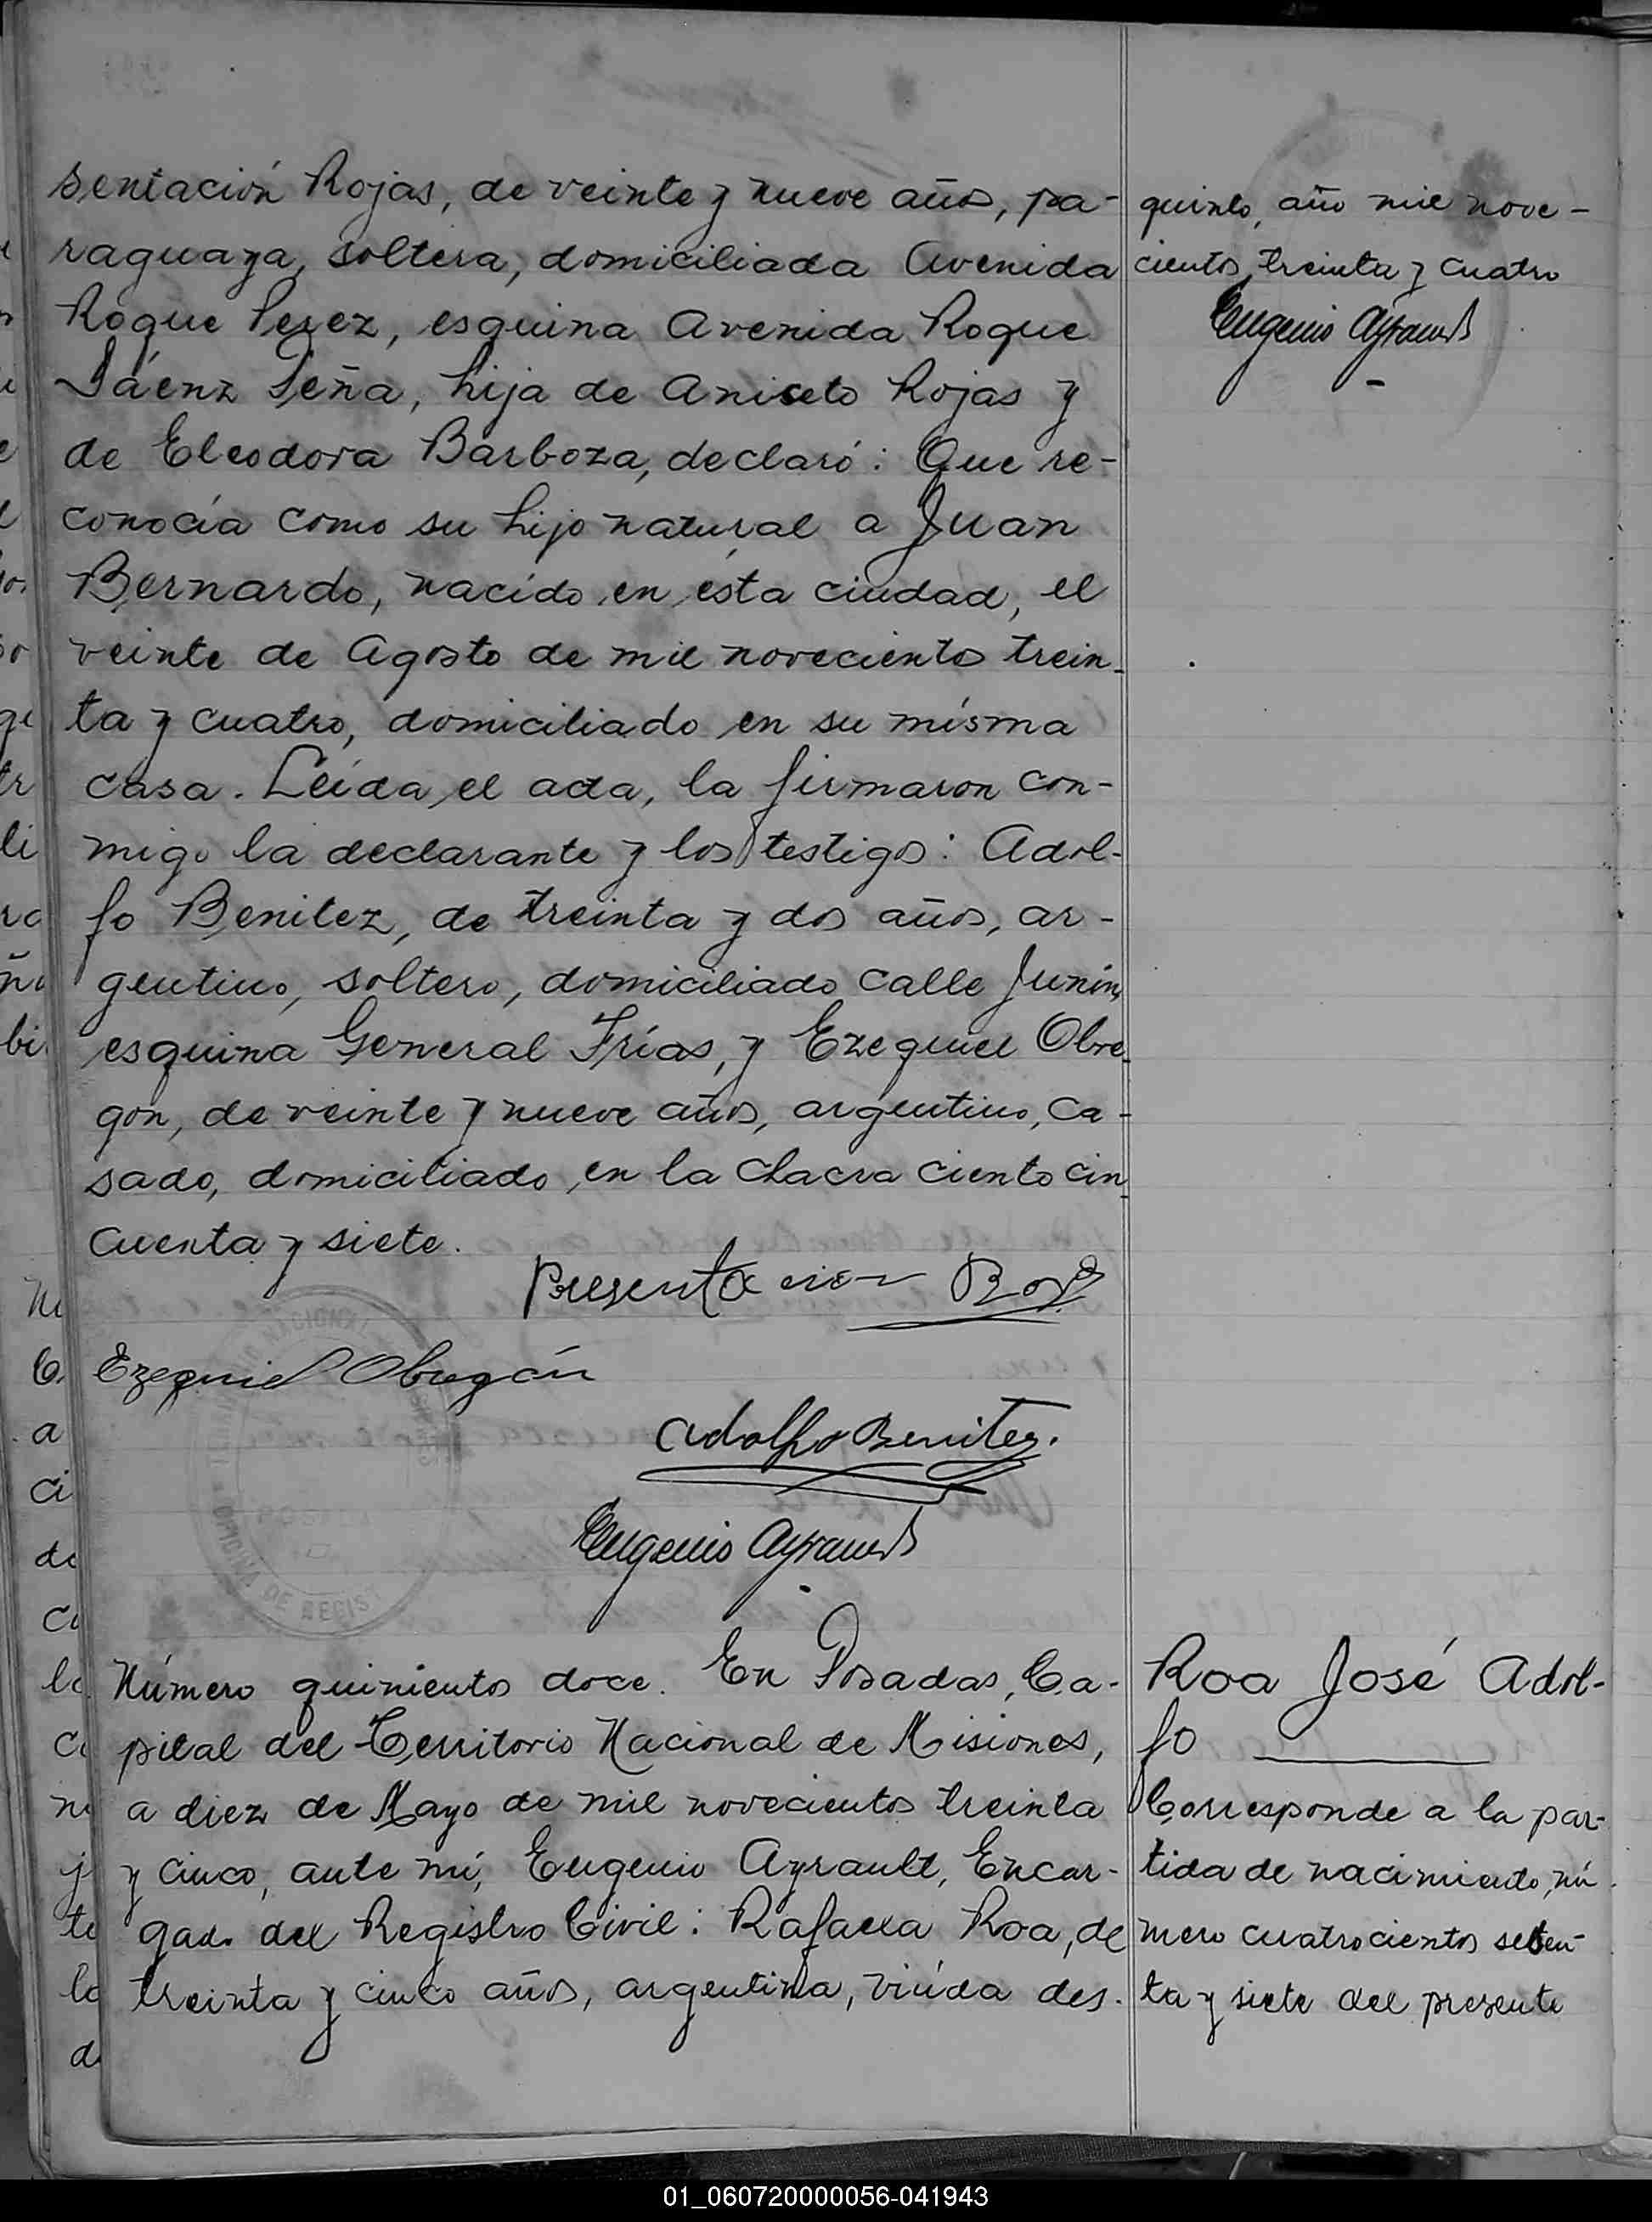 sentación Rojas, de veinte y nueve años, pa-
raguaya, soltera, domiciliada Avenida
Roque Perez, esquina Avenida Roque
Sáenz Peña, hija de Aniceto Rojas y
de Eleodora Barboza, declaró: Que re-
conocía como su hijo natural a Juan
Bernardo, nacido en ésta ciudad, el
veinte de Agosto de mil novecientos trein-
ta y cuatro, domiciliado en su misma
casa. Leída el acta, la firmaron con-
migo la declarante y los testigos: Adol-
fo Benitez, de treinta y dos años, ar-
gentino, soltero, domiciliado calle Junín,
esquina General Frías, y Ezequiel Obre-
gón, de veinte y nueve años, argentino, ca-
sado, domiciliado en la Chacra ciento cin-
cuenta y siete.
Presentacion
Ezequiel Obregón
Adolfo Benitez.
Eugenio Ayrault
quinto, año mil nove-
cientos treinta y cuatro
Eugenio Ayrault
Número quinientos doce. En Posadas, Ca-
pital del Territorio Nacional de Misiones,
a diez de Mayo de mil novecientos treinta
y cinco, ante mí, Eugenio Ayrault, Encar-
gado del Registro Civil: Rafaela Roa, de
treinta y cinco años, argentina, viúda des-
Roa José Adol-
fo
Corresponde a la par-
tida de nacimiento, nú-
mero cuatrocientos seten-
ta y siete del presente
01_060720000056-041943